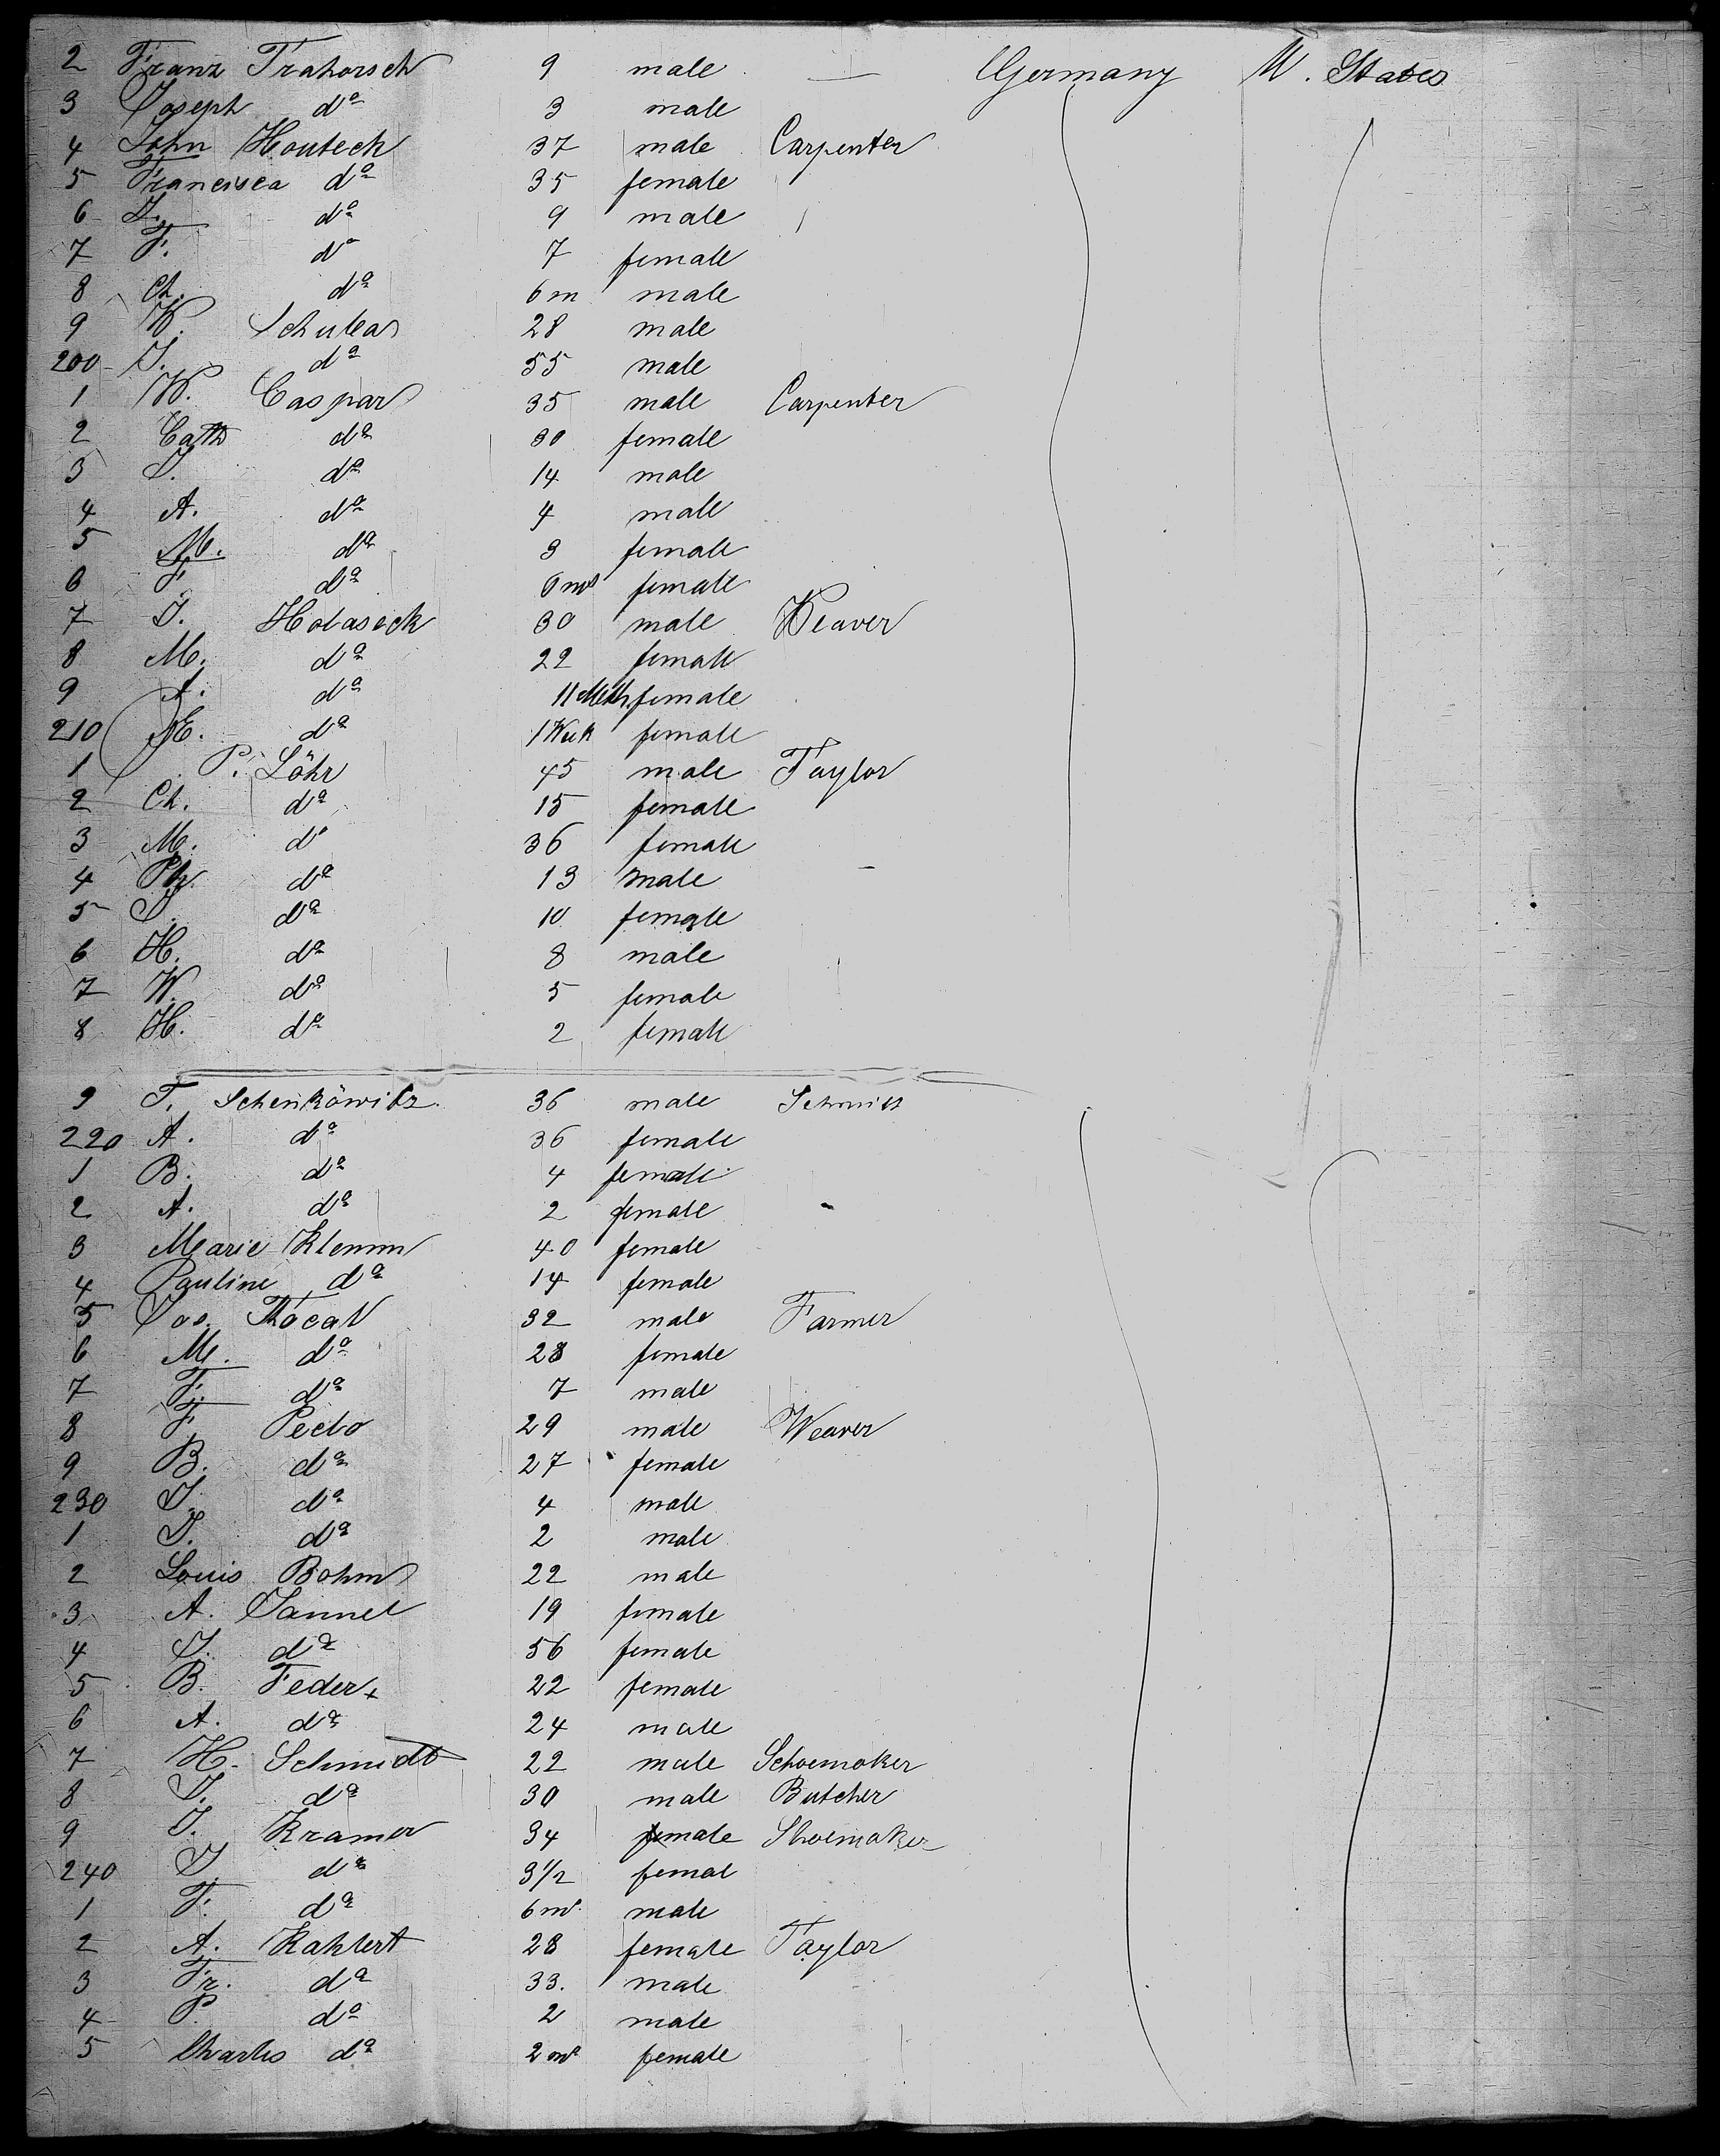 2 Franz Trahorsch 9 male — Germany U. States
3 Joseph do 3 male
4 John Houteck 37 male Carpenter
5 Francisca do 35 female
6 J. do 9 male
7 F. do 7 female
8 Ch. do 6 m male
9 W. Schulea 28 male
200 J. do 55 male
1 W. Caspar 35 male Carpenter
2 Cath do 30 female
3 J. do 14 male
4 A. do 4 male
5 M. do 3 female
6 F. do 6 ms female
7 J. Holaseck 30 male Weaver
8 M. do 22 female
9 A. do 11 Mth female
210 E. do 1 Week female
1 P. Löhr 45 male Taylor
2 Ch. do 15 female
3 M. do 36 female
4 Ph. do 13 male
5 J. do 10 female
6 H. do 8 male
7 W. do 5 female
8 H. do 2 female
9 F. Schenkowitz 36 male Schmitt
220 A. do 36 female
1 B. do 4 female
2 A. do 2 female
3 Marie Klemm 40 female
4 Pauline do 14 female
5 Jos. Kocal 32 male Farmer
6 M. do 28 female
7 F. do 7 male
8 F. Pecto 29 male Weaver
9 B. do 27 female
230 J. do 4 male
1 J. do 2 male
2 Louis Bohm 22 male
3 A. Jannel 19 female
4 J. do 56 female
5 B. Feder 22 female
6 A. do 24 male
7 H. Schmidt 22 male Schoemaker
8 J. do 30 male Butcher
9 J. Kramer 34 male Shoemaker
240 J. do 3 1/2 femal
1 F. do 6 ms. male
2 A. Kahlert 28 female Taylor
3 Fr. do 33. male
4 P. do 2 male
5 Charles do 2 ms female